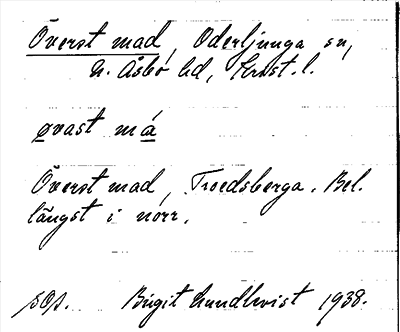 Överst mad, Oderljunga sn,
N. Åsbo hd, Krist. l.
øvast má
Överst mad, Troedsberga. Bel.
längst i norr.
sos. Birgit Lundkvist 1938.